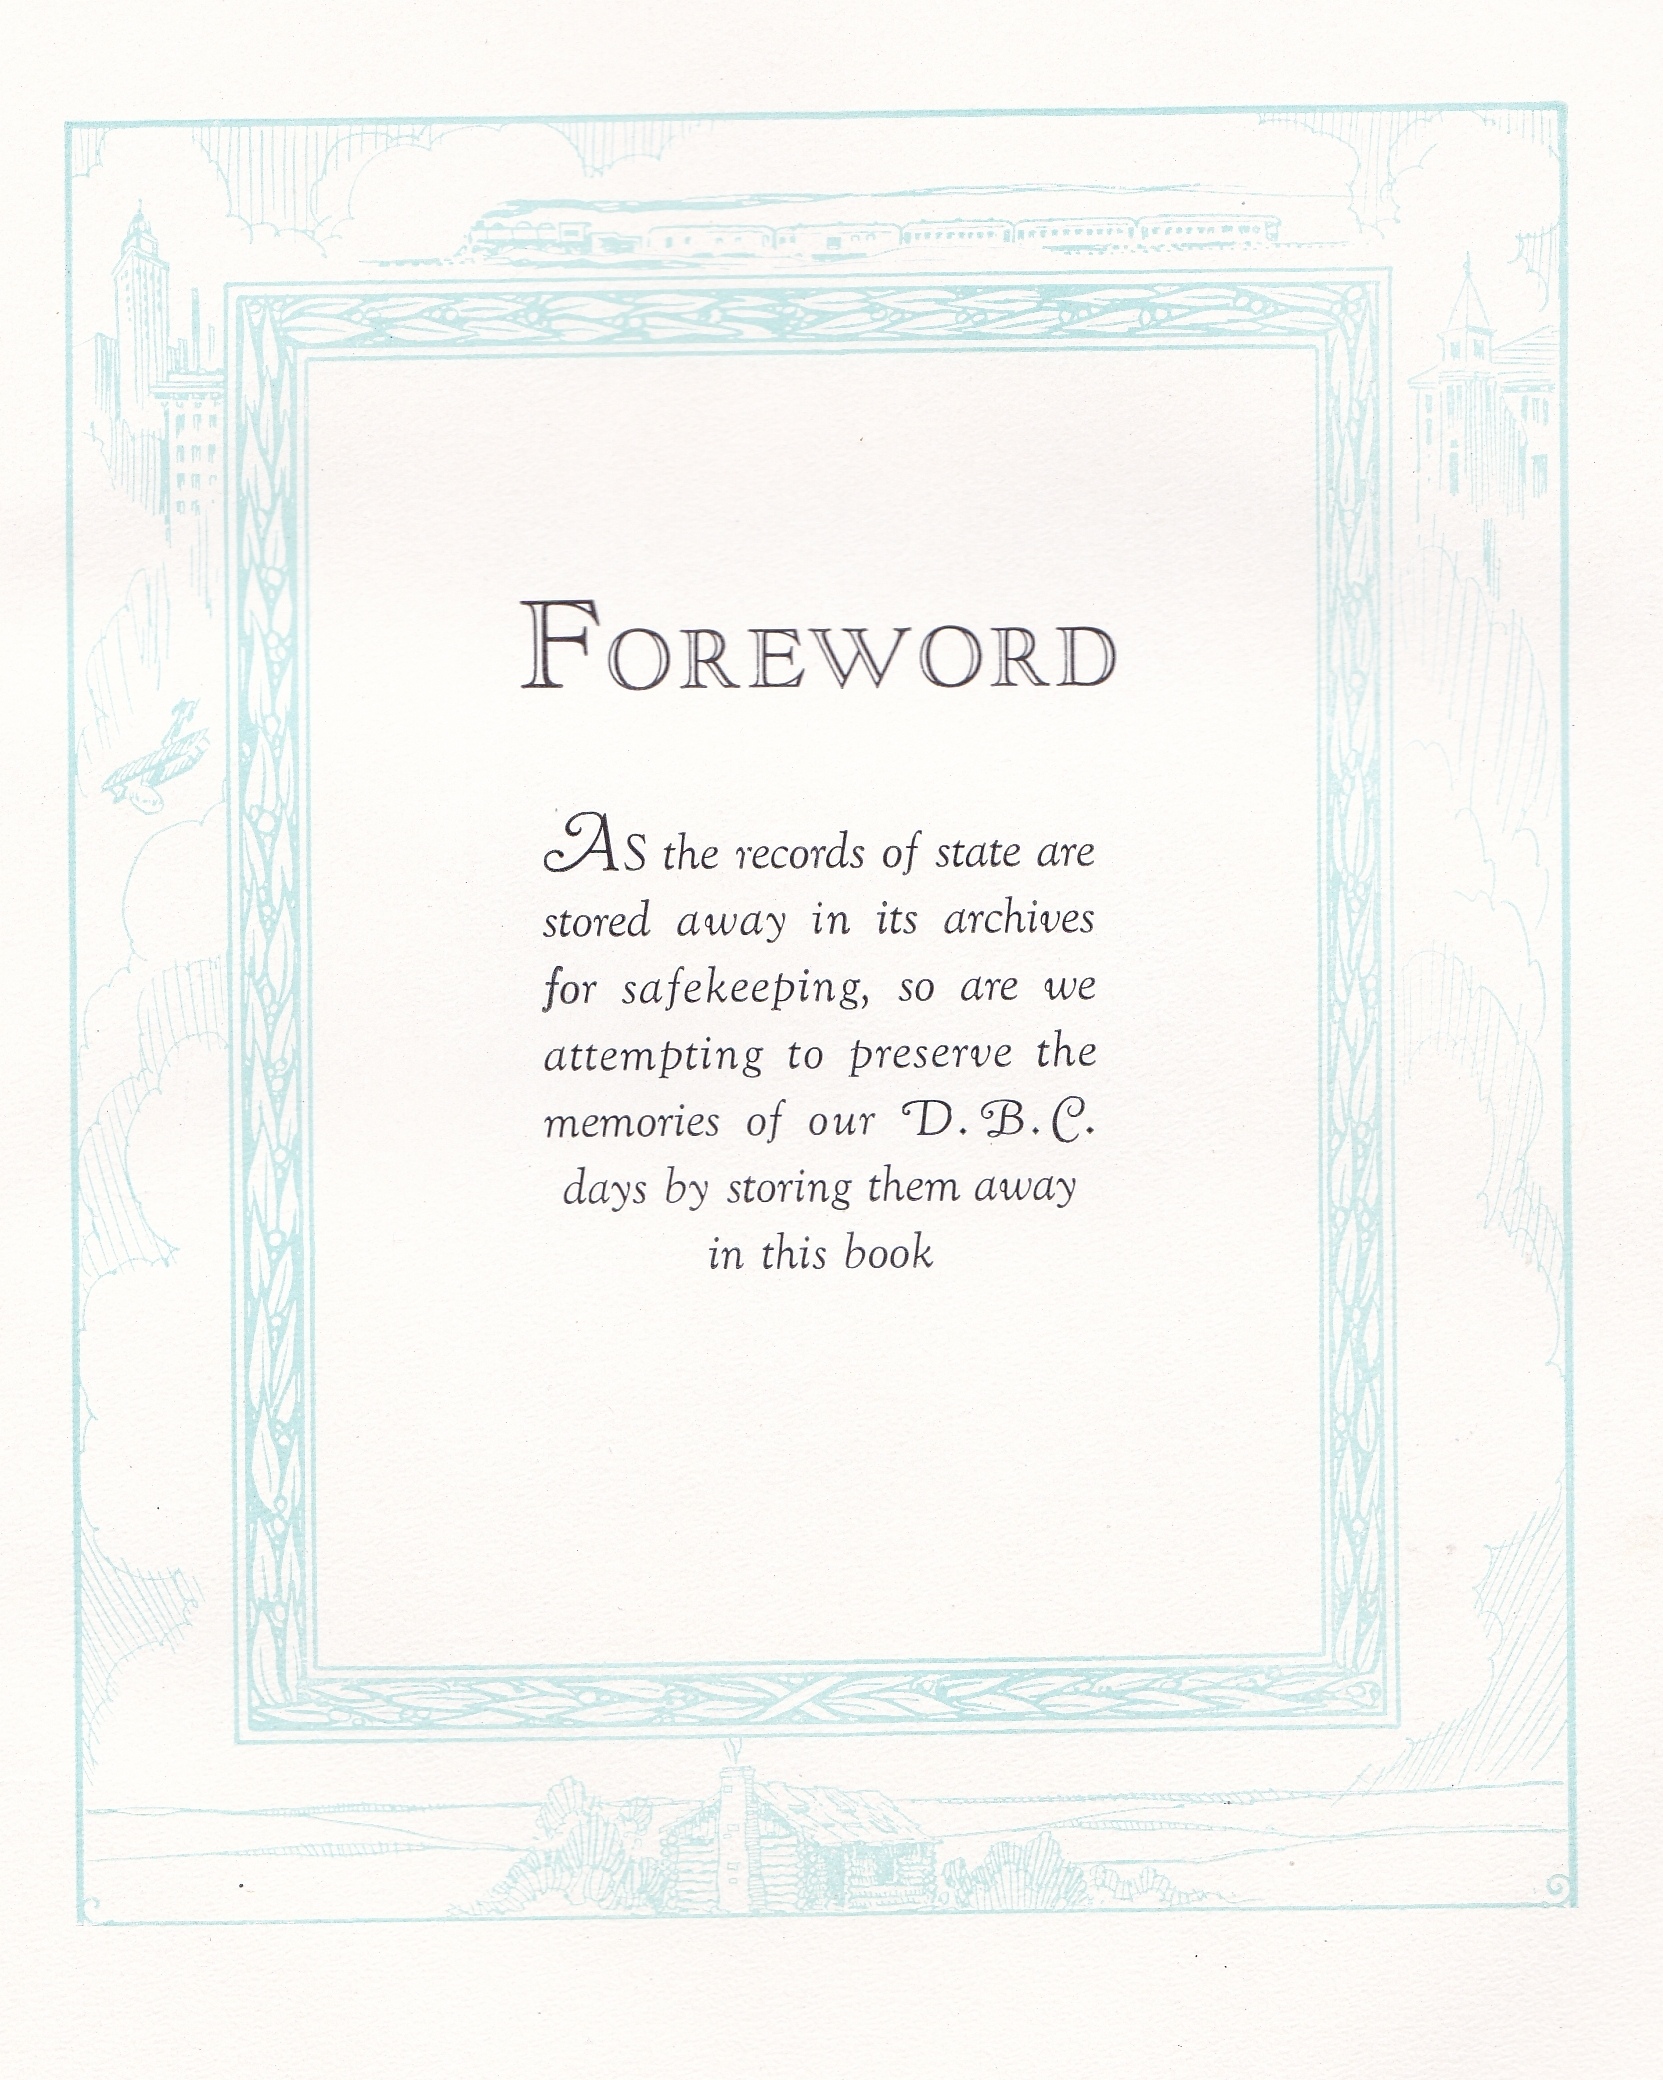 FOREWORD
As the records of state are
stored away in its archives
for safekeeping, so are we
attempting to preserve the
memories of our D. B. C.
days by storing them away
in this book